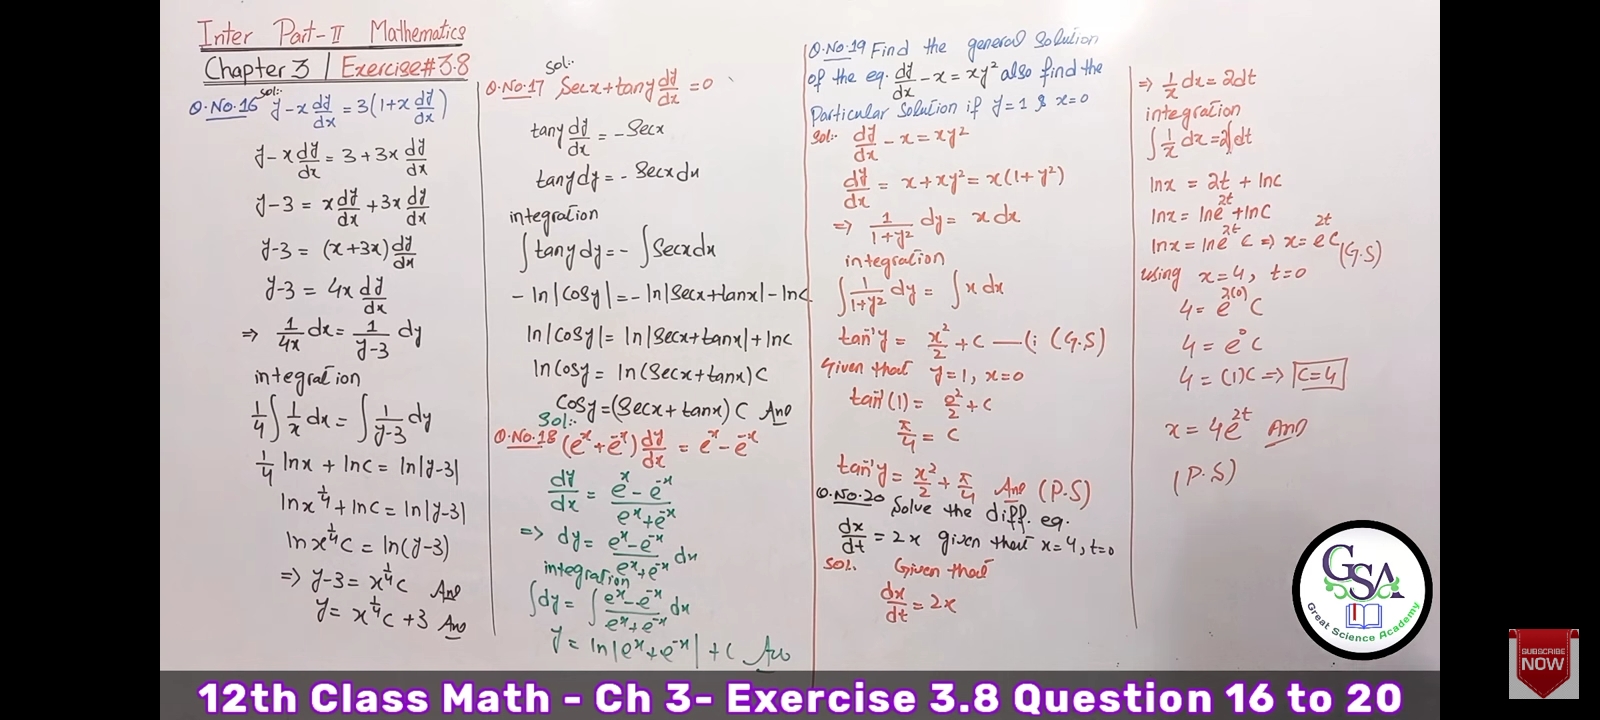 Inter Part-II Mathematics
Chapter 3 | Exercise#3.8
Q.No.16 Sol:- y-x dy/dx = 3(1+x dy/dx)
y-x dy/dx = 3+3x dy/dx
y-3 = x dy/dx + 3x dy/dx
y-3 = (x+3x) dy/dx
y-3 = 4x dy/dx
⇒ 1/4x dx = 1/y-3 dy
integration
1/4 ∫ 1/x dx = ∫ 1/y-3 dy
1/4 lnx + lnc = ln|y-3|
lnx^1/4 + lnc = ln|y-3|
lnx^1/4 c = ln(y-3)
⇒ y-3 = x^1/4 c Ans
y = x^1/4 c + 3 Ans
Sol:-
Q.No.17 Secx+tany dy/dx = 0
tany dy/dx = -Secx
tany dy = -Secx dx
integration
∫ tany dy = - ∫ Secx dx
-ln|Cosy| = -ln|Secx+tanx| - lnc
ln|Cosy| = ln|Secx+tanx| + lnc
ln Cosy = ln(Secx+tanx) C
Cosy = (Secx+tanx) C Ans
Sol:-
Q.No.18 (e^x+e^-x) dy/dx = e^x-e^-x
dy/dx = e^x-e^-x/e^x+e^-x
⇒ dy = e^x-e^-x/e^x+e^-x dx
integration
∫dy = ∫ e^x-e^-x/e^x+e^-x dx
y = ln|e^x+e^-x| + C Ans
Q.No.19 Find the general Solution
of the eq. dy/dx - x = xy² also find the
Particular Solution if y=1 & x=0
Sol:- dy/dx - x = xy²
dy/dx = x+xy² = x(1+y²)
⇒ 1/1+y² dy = x dx
integration
∫ 1/1+y² dy = ∫ x dx
tan⁻¹y = x²/2 + C —(i (G.S)
Given that y=1, x=0
tan⁻¹(1) = 0²/2 + C
π/4 = C
tan⁻¹y = x²/2 + π/4 Ans (P.S)
Q.No.20 Solve the diff. eq.
dx/dt = 2x given that x=4, t=0
Sol. Given that
dx/dt = 2x
⇒ 1/x dx = 2dt
integration
∫ 1/x dx = 2∫dt
lnx = 2t + lnc
lnx = lne^2t + lnC
lnx = lne^2t C ⇒ x = e^2t C (G.S)
using x=4, t=0
4 = e^2(0) C
4 = e^0 C
4 = (1)C ⇒ C=4
x = 4e^2t Ans
(P.S)
GSA
Great Science Academy
SUBSCRIBE
NOW
12th Class Math - Ch 3- Exercise 3.8 Question 16 to 20